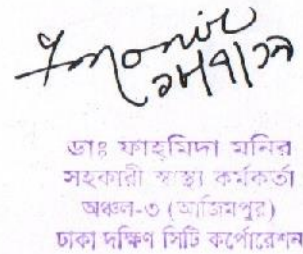 Fmonir
১৮/৭/১৭
ডাঃ ফাহমিদা মনির
সহকারী স্বাস্থ্য কর্মকর্তা
অঞ্চল-৩ (আজিমপুর)
ঢাকা দক্ষিণ সিটি কর্পোরেশন